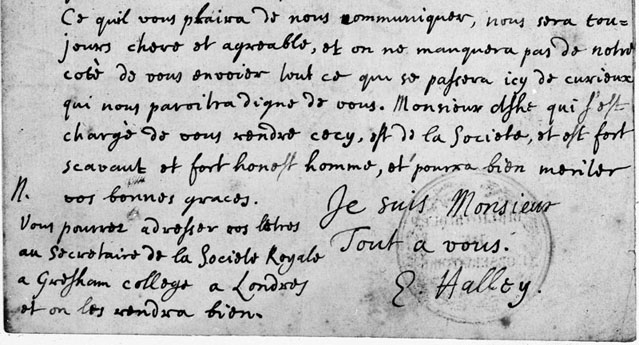 Ce quil vous plaira de nous communiquer, nous sera tou=
jours chere et agreable, et on ne manquera pas de notre
coté de vous envoier tout ce qui se passera icy de curieux
qui nous paroitra digne de vous. Monsieur Ashe qui s'est
chargé de vous rendre cecy, est de la Societe, et est fort
scavant et fort honest homme, et pourra bien meriter
vos bonnes graces.
Je suis Monsieur
Tout a vous.
E. Halley.
N.
Vous pourrez adresser vos letres
au Secretaire de la Societe Royale
a Gresham college a Londres
et on les rendra bien.